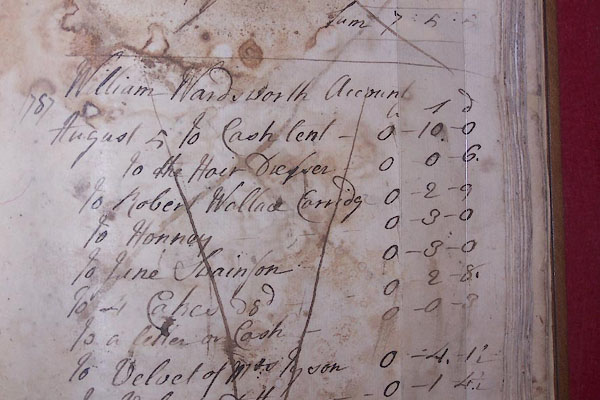 Sum 7 : 5 :
William Wardsworth Account
1787 d
August 5 To Cash lent - 0 - 10 - 0
To the Hair Dresser 0 0 - 6
To Robert Wallace 0 - 2 - 9
To Honney 0 - 3 - 0
To June Swainson 0 - 3 - 0
To 4 Cakes 8d 0 2 - 8
To a letter or Cash - 0 - 0 - 3
To Velvet of Mrs Tyson 0 - 4 - 1½
0 - 1 4